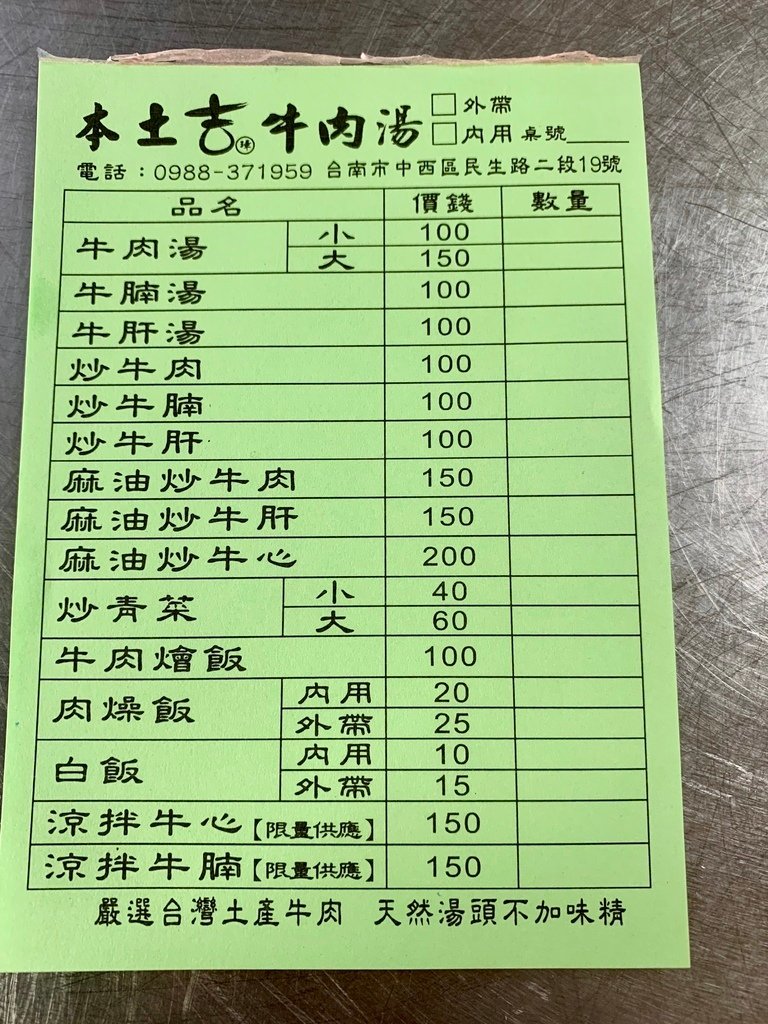 本土吉牛肉湯 □外帶
□內用 桌號____
電話：0988-371959 台南市中西區民生路二段19號
品名 價錢 數量
牛肉湯 小 100
大 150
牛腩湯 100
牛肝湯 100
炒牛肉 100
炒牛腩 100
炒牛肝 100
麻油炒牛肉 150
麻油炒牛肝 150
麻油炒牛心 200
炒青菜 小 40
大 60
牛肉燴飯 100
肉燥飯 內用 20
外帶 25
白飯 內用 10
外帶 15
涼拌牛心【限量供應】 150
涼拌牛腩【限量供應】 150
嚴選台灣土產牛肉 天然湯頭不加味精